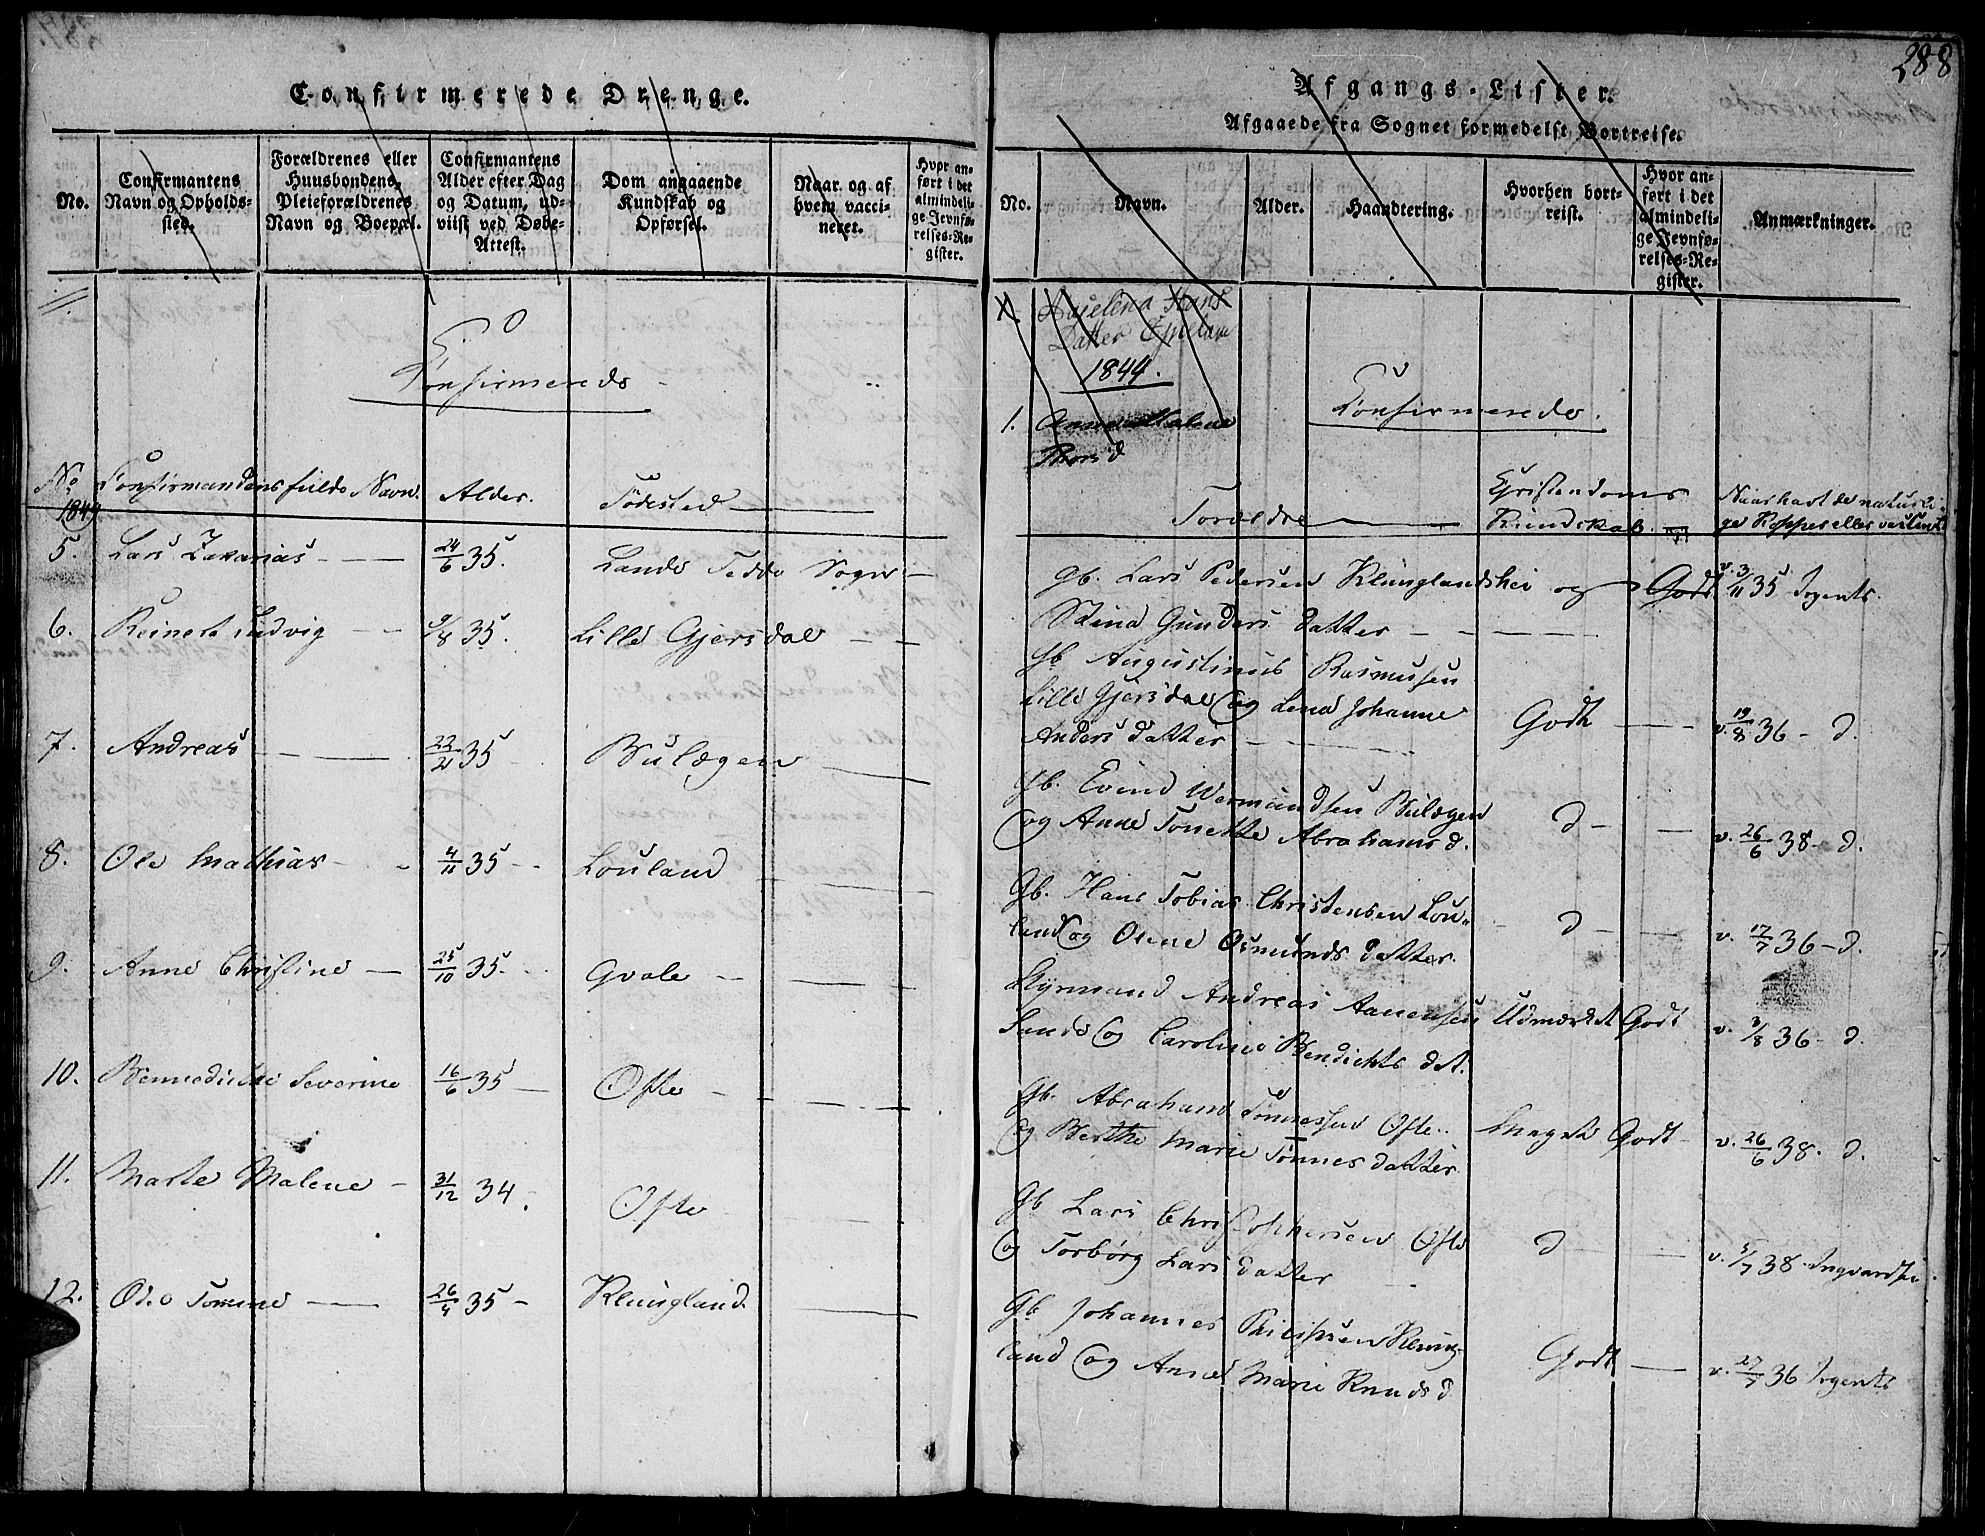 288
Confirmerede Drenge.
No.
Confirmantens
Navn og Opholds-
sted.
Forældrenes eller
Huusbondens,
Pleieforældrenes
Navn og Boepæl.
Confirmantens
Alder efter Dag
og Datum, ud-
viist ved Døbe-
Attest.
Dom angaaende
Kundskab og
Opførsel.
Naar og af
hvem vacci-
neret.
Hvor an-
ført i det
almindeli-
ge Jevnfø-
relses-Re-
gister.
Confirmerede
No
1849
Confirmandens fulde Navn.
Alder.
Födested
5. Lars Zakarias 24/6 35. Lands Fedde Sogn
6. Reinert Ludvig 9/8 35. Lille Gjersdal
7. Andreas 22/2 35 Bulægen
8. Ole Mathias 4/11 35 Louland
9. Anne Christine 25/10 35 Qvale
10. Bennedicte Severine 16/6 35 Ofte
11. Marte Malene 31/12 34 Ofte
12. Odeo Tomine 26/4 35 Klungland
Afgangs-Lister.
Afgaaede fra Sognet formedelst Bortreise.
No.
Navn.
Alder.
Haandtering.
Hvorhen bort-
reist.
Hvor an-
ført i det
almindeli-
ge Jevnfø-
relses-Re-
gister.
Anmærkninger.
Hans
Datter
1844.
1. Anne Malene
Thorsd
Confirmerede.
Foreldre
Christendoms
Kundskab
Naar havt de naturli-
ge Kopper eller vaksineret
Gb. Lars Pedersen Klunglandshei og Godt v. 3/11 35 Irgents.
Stina Gunders datter
Gb Augustinus Rasmusen
Lille Gjersdal og Lena Johanne Godt v. 19/8 36 - d.
Anders datter
Gb. Evind Wermundsen Bulægen
og Anne Tonette Abrahams d. d v. 26/6 38 - d.
Gb. Hans Tobias Christensen Lou-
land og Olene Osmunds datter. d v. 17/7 36 - d.
Styrmand Andreas Aanensen Udmærket Godt v. 3/8 36 - d.
Sande og Caroline Bendichts dat.
Gb. Abraham Tönnessen Ofte.. Meget Godt v. 26/6 38. d.
og Berthe Marie Tönnes datter
Gb Lars Christophersen Ofte d v. 5/7 38. Ingvardsen
og Torbørg Lars datter
Gb Johannes Philipsen Klung-
land og Anne Marie Knuds d Godt v. 27/7 36 Irgents